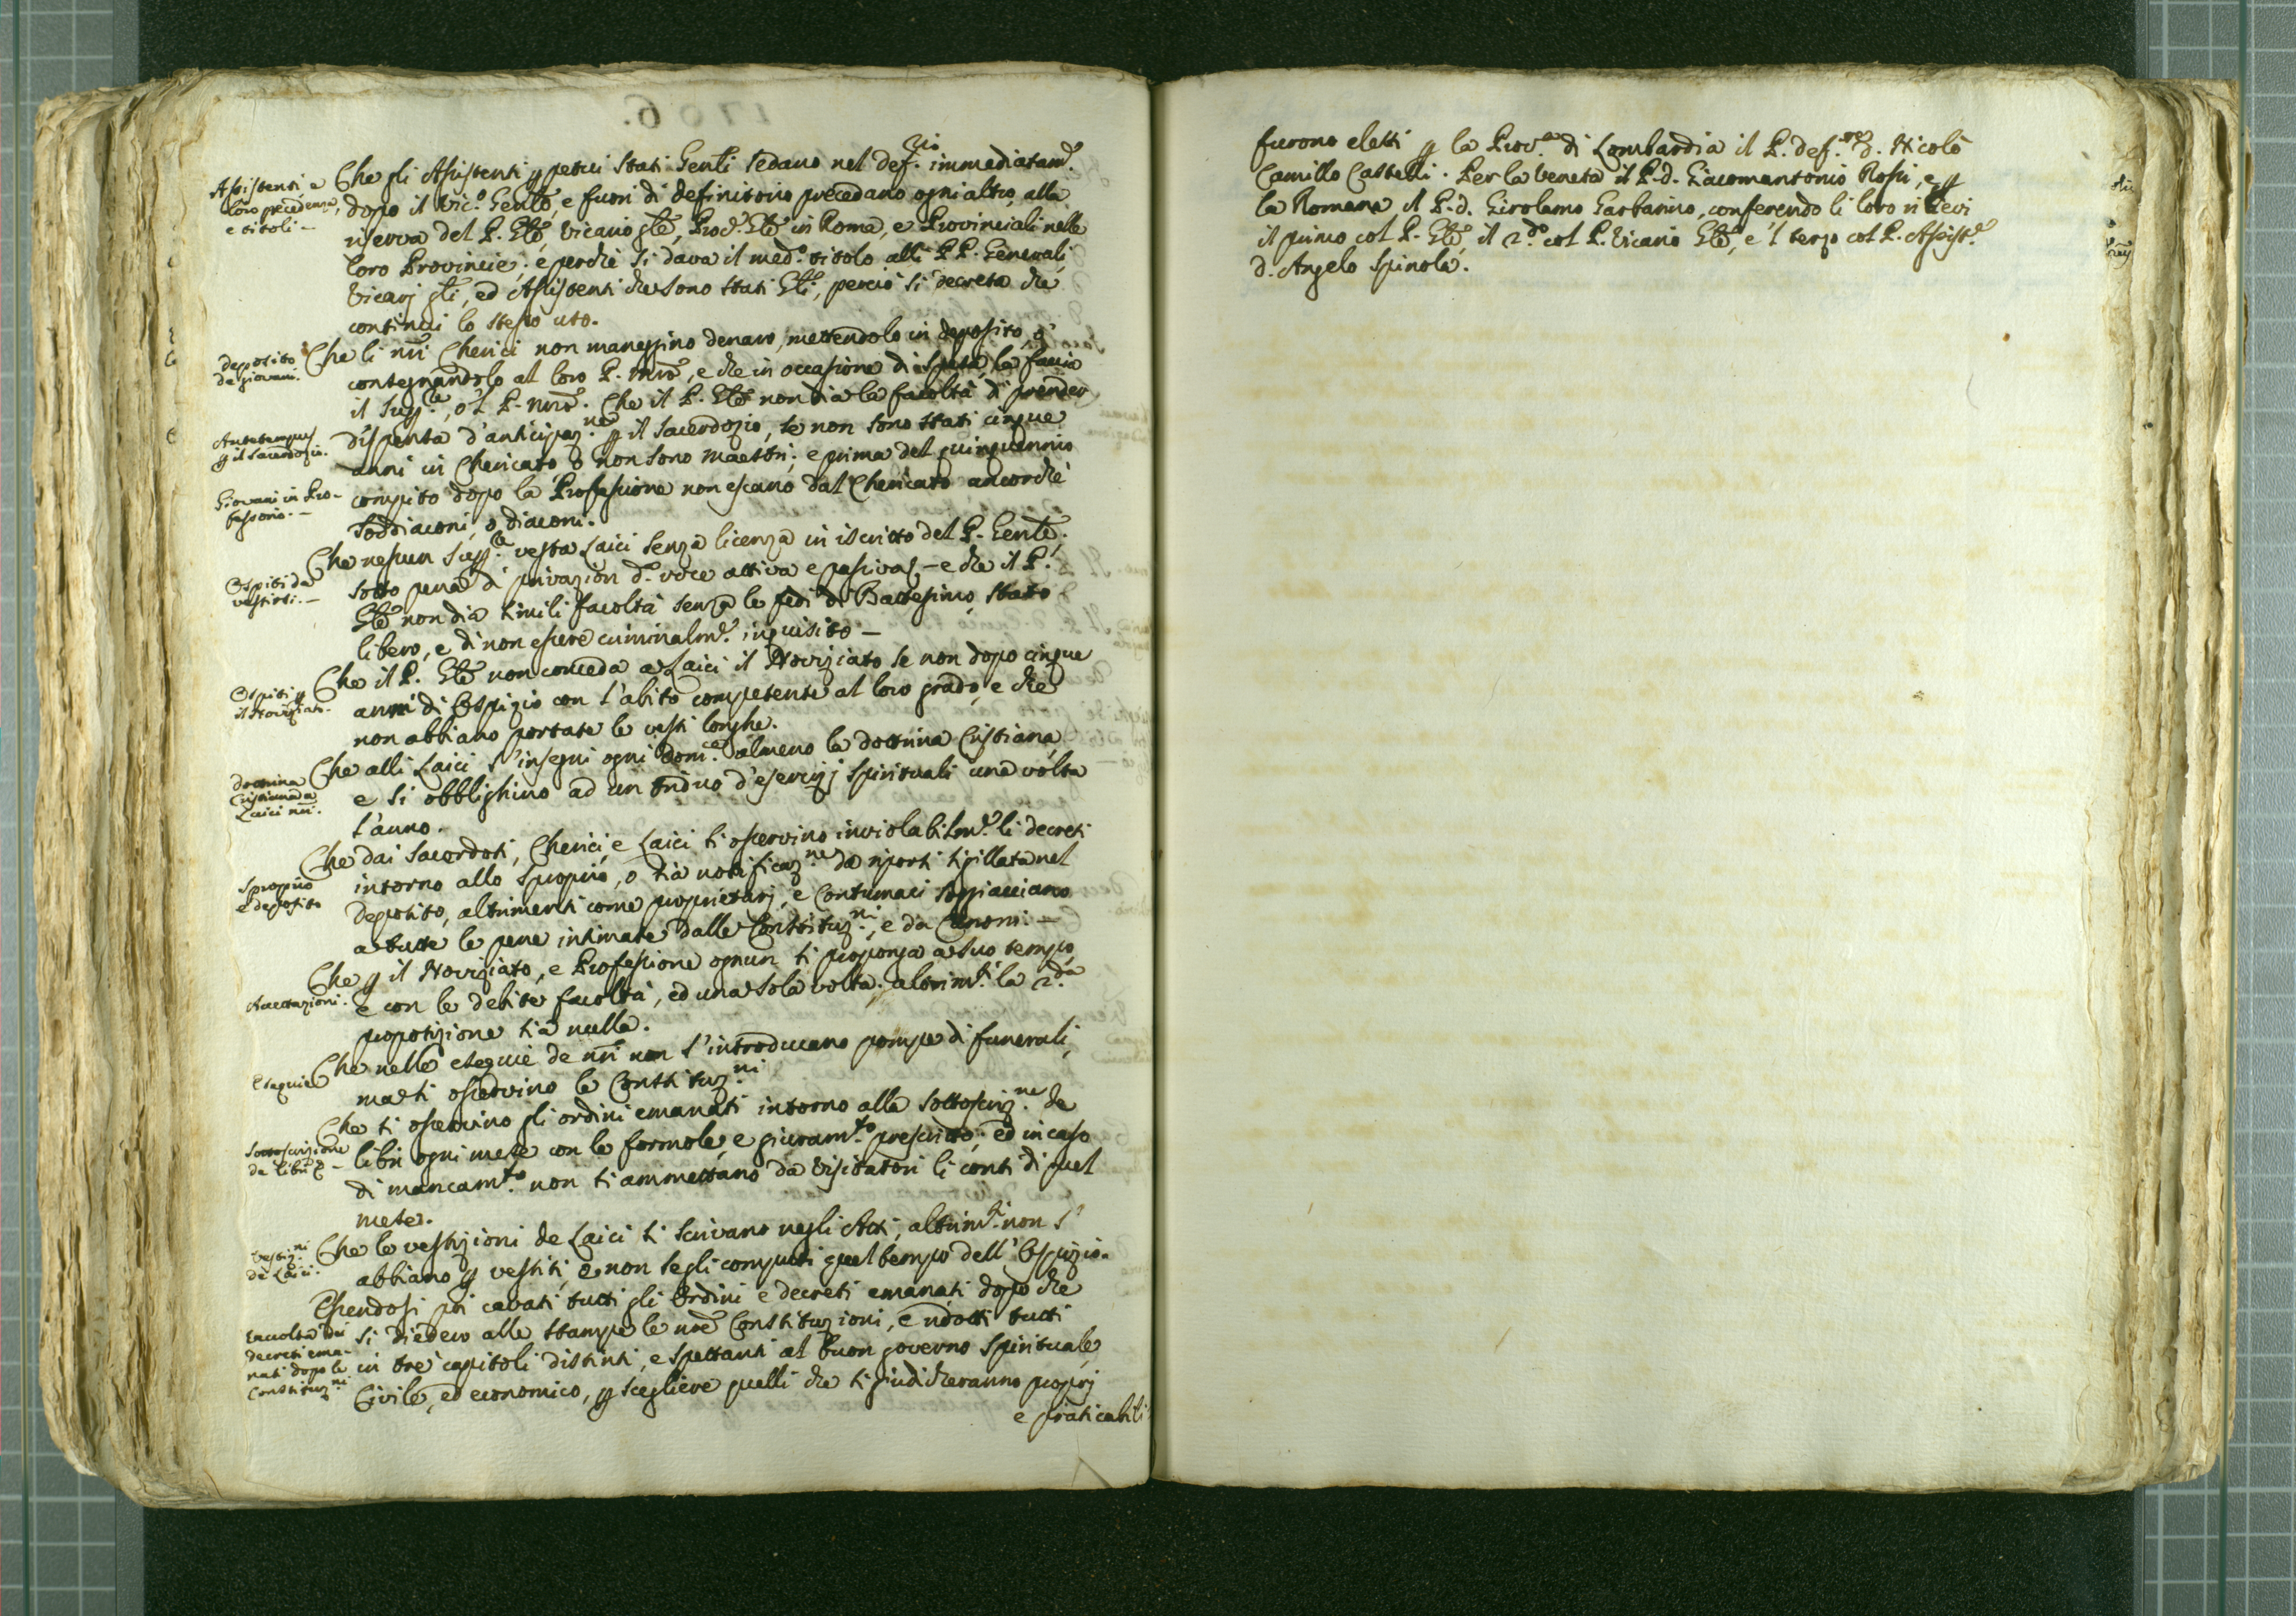 Assistenti e
loro precedenza,
e titoli. -
Che gli Assistenti p essere stati Genli sedano nel def.rio immediatam.e
dopo il Vic.o Genle, e fuori di definitorio precedano ogni altro, alla
riserva del P. Gle, Vicario gle, Proc.r Gle in Roma, e Provinciali nelle
loro Provincie; e perche si dava il med.o titolo alli PP. Generali,
Vicarj gli, ed Assistenti che sono stati Gli, perciò si decreta che
continui lo stesso uso.
deposito
de giovani.
Che li nri Cherici non maneggino denaro, mettendolo in deposito, o
consegnandolo al loro P. Mro, e che in occasione di spesa, la faccia
il Sup.re, o 'l P. Mro. Che il P. Gle non dia la facoltà di prender
Antetempus
p il Sacerdozio.
dispensa d'anticipaz.ne p il Sacerdozio, se non sono stati cinque
anni in Chericato o non sono Maestri; e prima del quinquennio
Giovani in Pro-
fessorio. -
compito dopo la Professione non escano dal Chericato ancorchè
Soddiaconi, o diaconi.
Ospiti da
vestirsi. -
Che nessun Sup.re vesta Laici senza licenza in iscritto del P. Genle,
sotto pena di privazion d. voce attiva e passiva, - e che il P.
Gle non dia simili facoltà senza le fedi di Battesimo, stato
libero, e di non essere criminalm.e inquisito -
Ospiti p
il Noviziato.
Che il P. Gle non conceda a Laici il Noviziato se non dopo cinque
anni di Ospizio con l'abito competente al loro grado, e che
non abbiano portate le vesti longhe.
dottrina
Cristiana a
Laici nri.
Che alli Laici s'insegni ogni Dom.ca almeno la dottrina Cristiana,
e si obblighino ad un triduo d'esercizj spirituali una volta
l'anno.
Sproprio
e deposito
Che dai Sacerdoti, Cherici, e Laici si osservino inviolabilm.e li decreti
intorno allo sproprio, o sia notificaz.ne da riporsi sigillata nel
deposito, altrimenti come proprietarj, e contumaci soggiacciano
a tutte le pene intimate dalle Constituz.ni, e da Canoni. -
Accettazioni.
Che p il Noviziato, e Professione ognun si proponga a suo tempo,
e con le debite facoltà, ed una sola volta. altrim.ti la 2.da
proposizione sia nulla.
Esequie
Che nelle esequie de nri non s'introducano pompe di funerali,
ma si osservino le Constituz.ni
Sottoscrizione
de libri &. -
Che si osservino gli ordini emanati intorno alla sottoscriz.ne de
libri ogni mese con le formole, e giuram.to prescritto; ed in caso
di mancam.to non si ammettano da Visitatori li conti di quel
mese.
Vestiz.ni
de Laici.
Che le vestizioni de Laici si scrivano negli Atti, altrim.ti non s'
abbiano p vestiti, e non se gli computi quel tempo dell'Ospizio.
Raccolta dei
decreti ema-
nati dopo le
Constituz.ni
Essendosi poi cavati tutti gli Ordini e decreti emanati dopo che
si diedero alle stampe le nre Constituzioni, e ridotti tutti
in tre capitoli distinti, e spettanti al buon governo spirituale,
Civile, ed economico, p scegliere quelli che si giudicheranno proprj
e praticabili
furono eletti p la Prov.a di Lombardia il P. def.re d. Nicolò
Camillo Castelli. Per la Veneta il P. d. Giacomantonio Rossi, e p
la Romana il P. d. Girolamo Garbarino, conferendo li loro rilievi
il primo col P. Gle, il 2.do col P. Vicario Gle, e 'l terzo col P. Assist.e
d. Angelo Spinola.